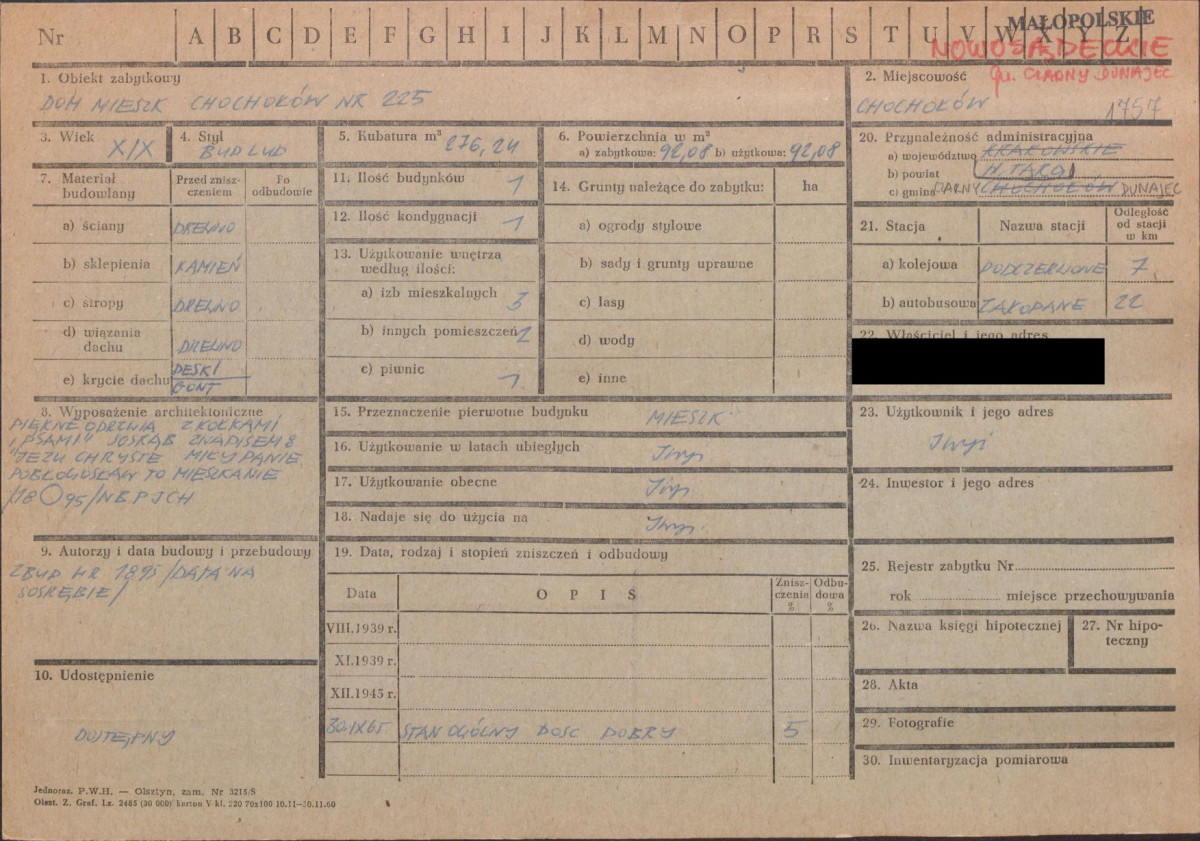 Nr A B C D E F G H I J K L M N O P R S T U V W X Y Z
MAŁOPOLSKIE
NOWOSĄDECKIE
gm. CZARNY DUNAJEC
1. Obiekt zabytkowy
DOM MIESZK CHOCHOŁÓW NR 225
2. Miejscowość
CHOCHOŁÓW
1757
3. Wiek XIX
4. Styl
BUD LUD
5. Kubatura m³ 276,24
6. Powierzchnia w m²
a) zabytkowa: 92,08 b) użytkowa: 92,08
20. Przynależność administracyjna
a) województwo KRAKOWSKIE
b) powiat N. TARG
c) gmina CZARNY CHOCHOŁÓW DUNAJEC
7. Materiał budowlany
Przed zniszczeniem
Po odbudowie
a) ściany DREWNO
b) sklepienia KAMIEŃ
c) stropy DREWNO
d) wiązania dachu DREWNO
e) krycie dachu DESKI
GONT
11. Ilość budynków 1
12. Ilość kondygnacji 1
13. Użytkowanie wnętrza
według ilości:
a) izb mieszkalnych 3
b) innych pomieszczeń 2
c) piwnic 1
14. Grunty należące do zabytku: ha
a) ogrody stylowe
b) sady i grunty uprawne
c) lasy
d) wody
e) inne
21. Stacja Nazwa stacji Odległość od stacji w km
a) kolejowa PODCZERWONE 7
b) autobusowa ZAKOPANE 22
22. Właściciel i jego adres
8. Wyposażenie architektoniczne
PIĘKNE ODRZWIA Z KOŁKAMI
"PSAMI" SOSRĄB Z NAPISEM 8
"JEZU CHRYSTE MIŁY PANIE
POBŁOGOSŁAW TO MIESZKANIE
/18 O 95/NBPJCH
15. Przeznaczenie pierwotne budynku MIESZK
16. Użytkowanie w latach ubiegłych
17. Użytkowanie obecne
18. Nadaje się do użycia na
23. Użytkownik i jego adres
24. Inwestor i jego adres
9. Autorzy i data budowy i przebudowy
ZBUD HR 1895 /DATA NA
SOSRĘBIE/
19. Data, rodzaj i stopień zniszczeń i odbudowy
Data OPIS Zniszczenia % Odbudowa %
VIII.1939 r.
XI.1939 r.
XII.1945 r.
30.IX65 STAN OGÓLNY DOŚC DOBRY 5
25. Rejestr zabytku Nr
rok miejsce przechowywania
26. Nazwa księgi hipotecznej
27. Nr hipoteczny
28. Akta
29. Fotografie
30. Inwentaryzacja pomiarowa
10. Udostępnienie
DOSTĘPNY
Jednoraz. P.W.H. — Olsztyn, zam. Nr 3215/S
Olszt. Z. Graf. Lz. 2485 (30 000) karton V kl. 220 70x100 10.11—30.11.60